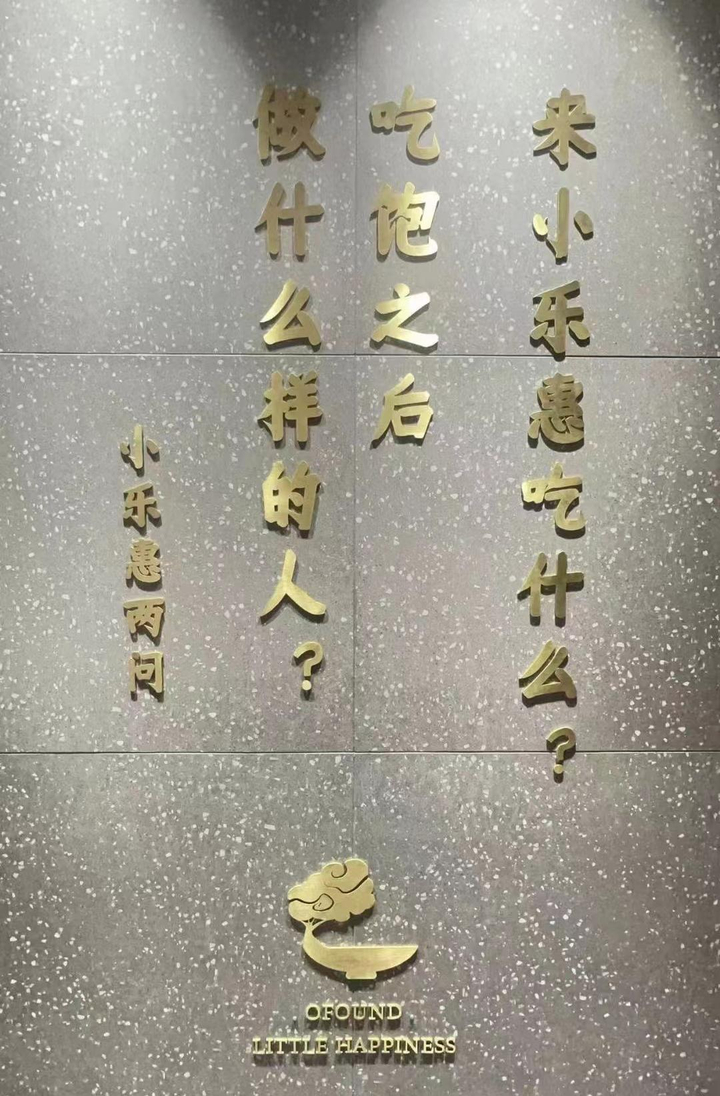 来小乐惠吃什么?
吃饱之后
做什么样的人?
小乐惠两问
OFOUND
LITTLE HAPPINESS